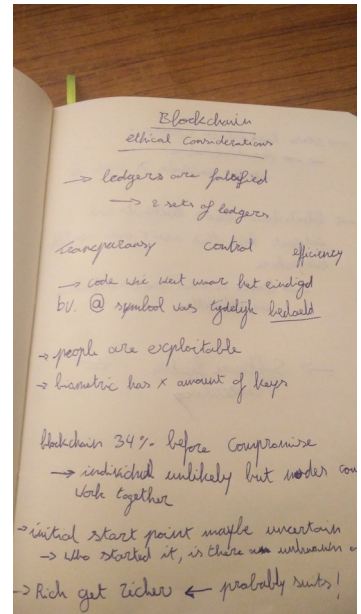 Blockchain
ethical considerations
→ ledgers are falsified
→ 2 sets of ledgers
transparansy control efficiency
→ code wie weet waar het eindigd
bv. @ symbool was tijdelijk bedoeld
→ people are exploitable
→ biometric has x amount of keys
blockchain 34% before compromise
→ individual unlikely but nodes
work together
→ initial start point maybe uncertain
→ who started it, is there an unknown
→ Rich get richer ← probably suits!